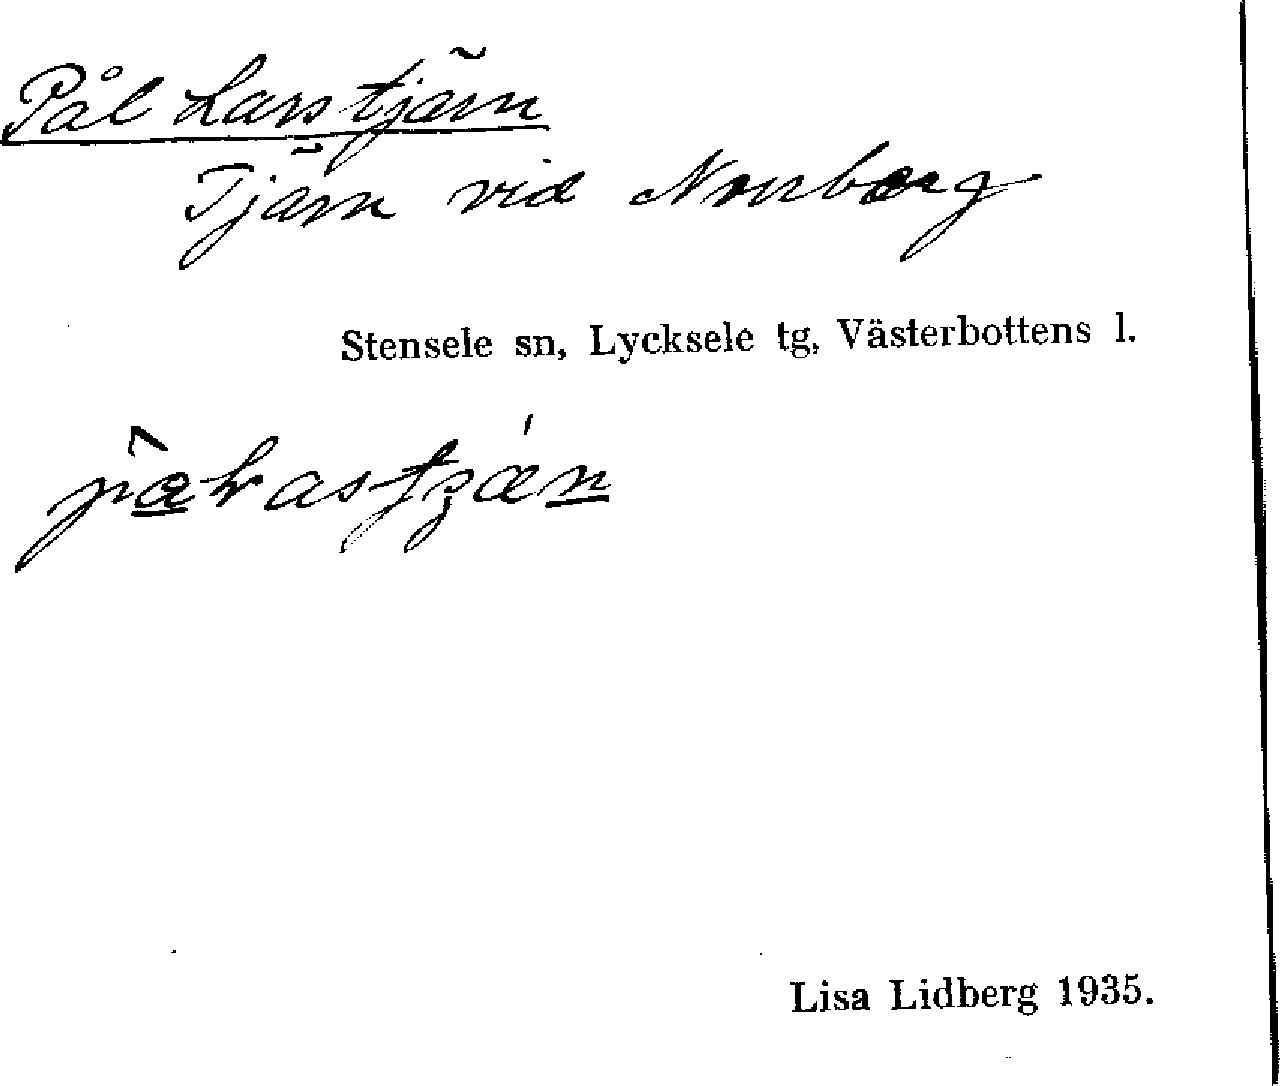 Pål Larstjärn
Tjärn vid Norrberg
Stensele sn, Lycksele tg, Västerbottens l.
Lisa Lidberg 1935.